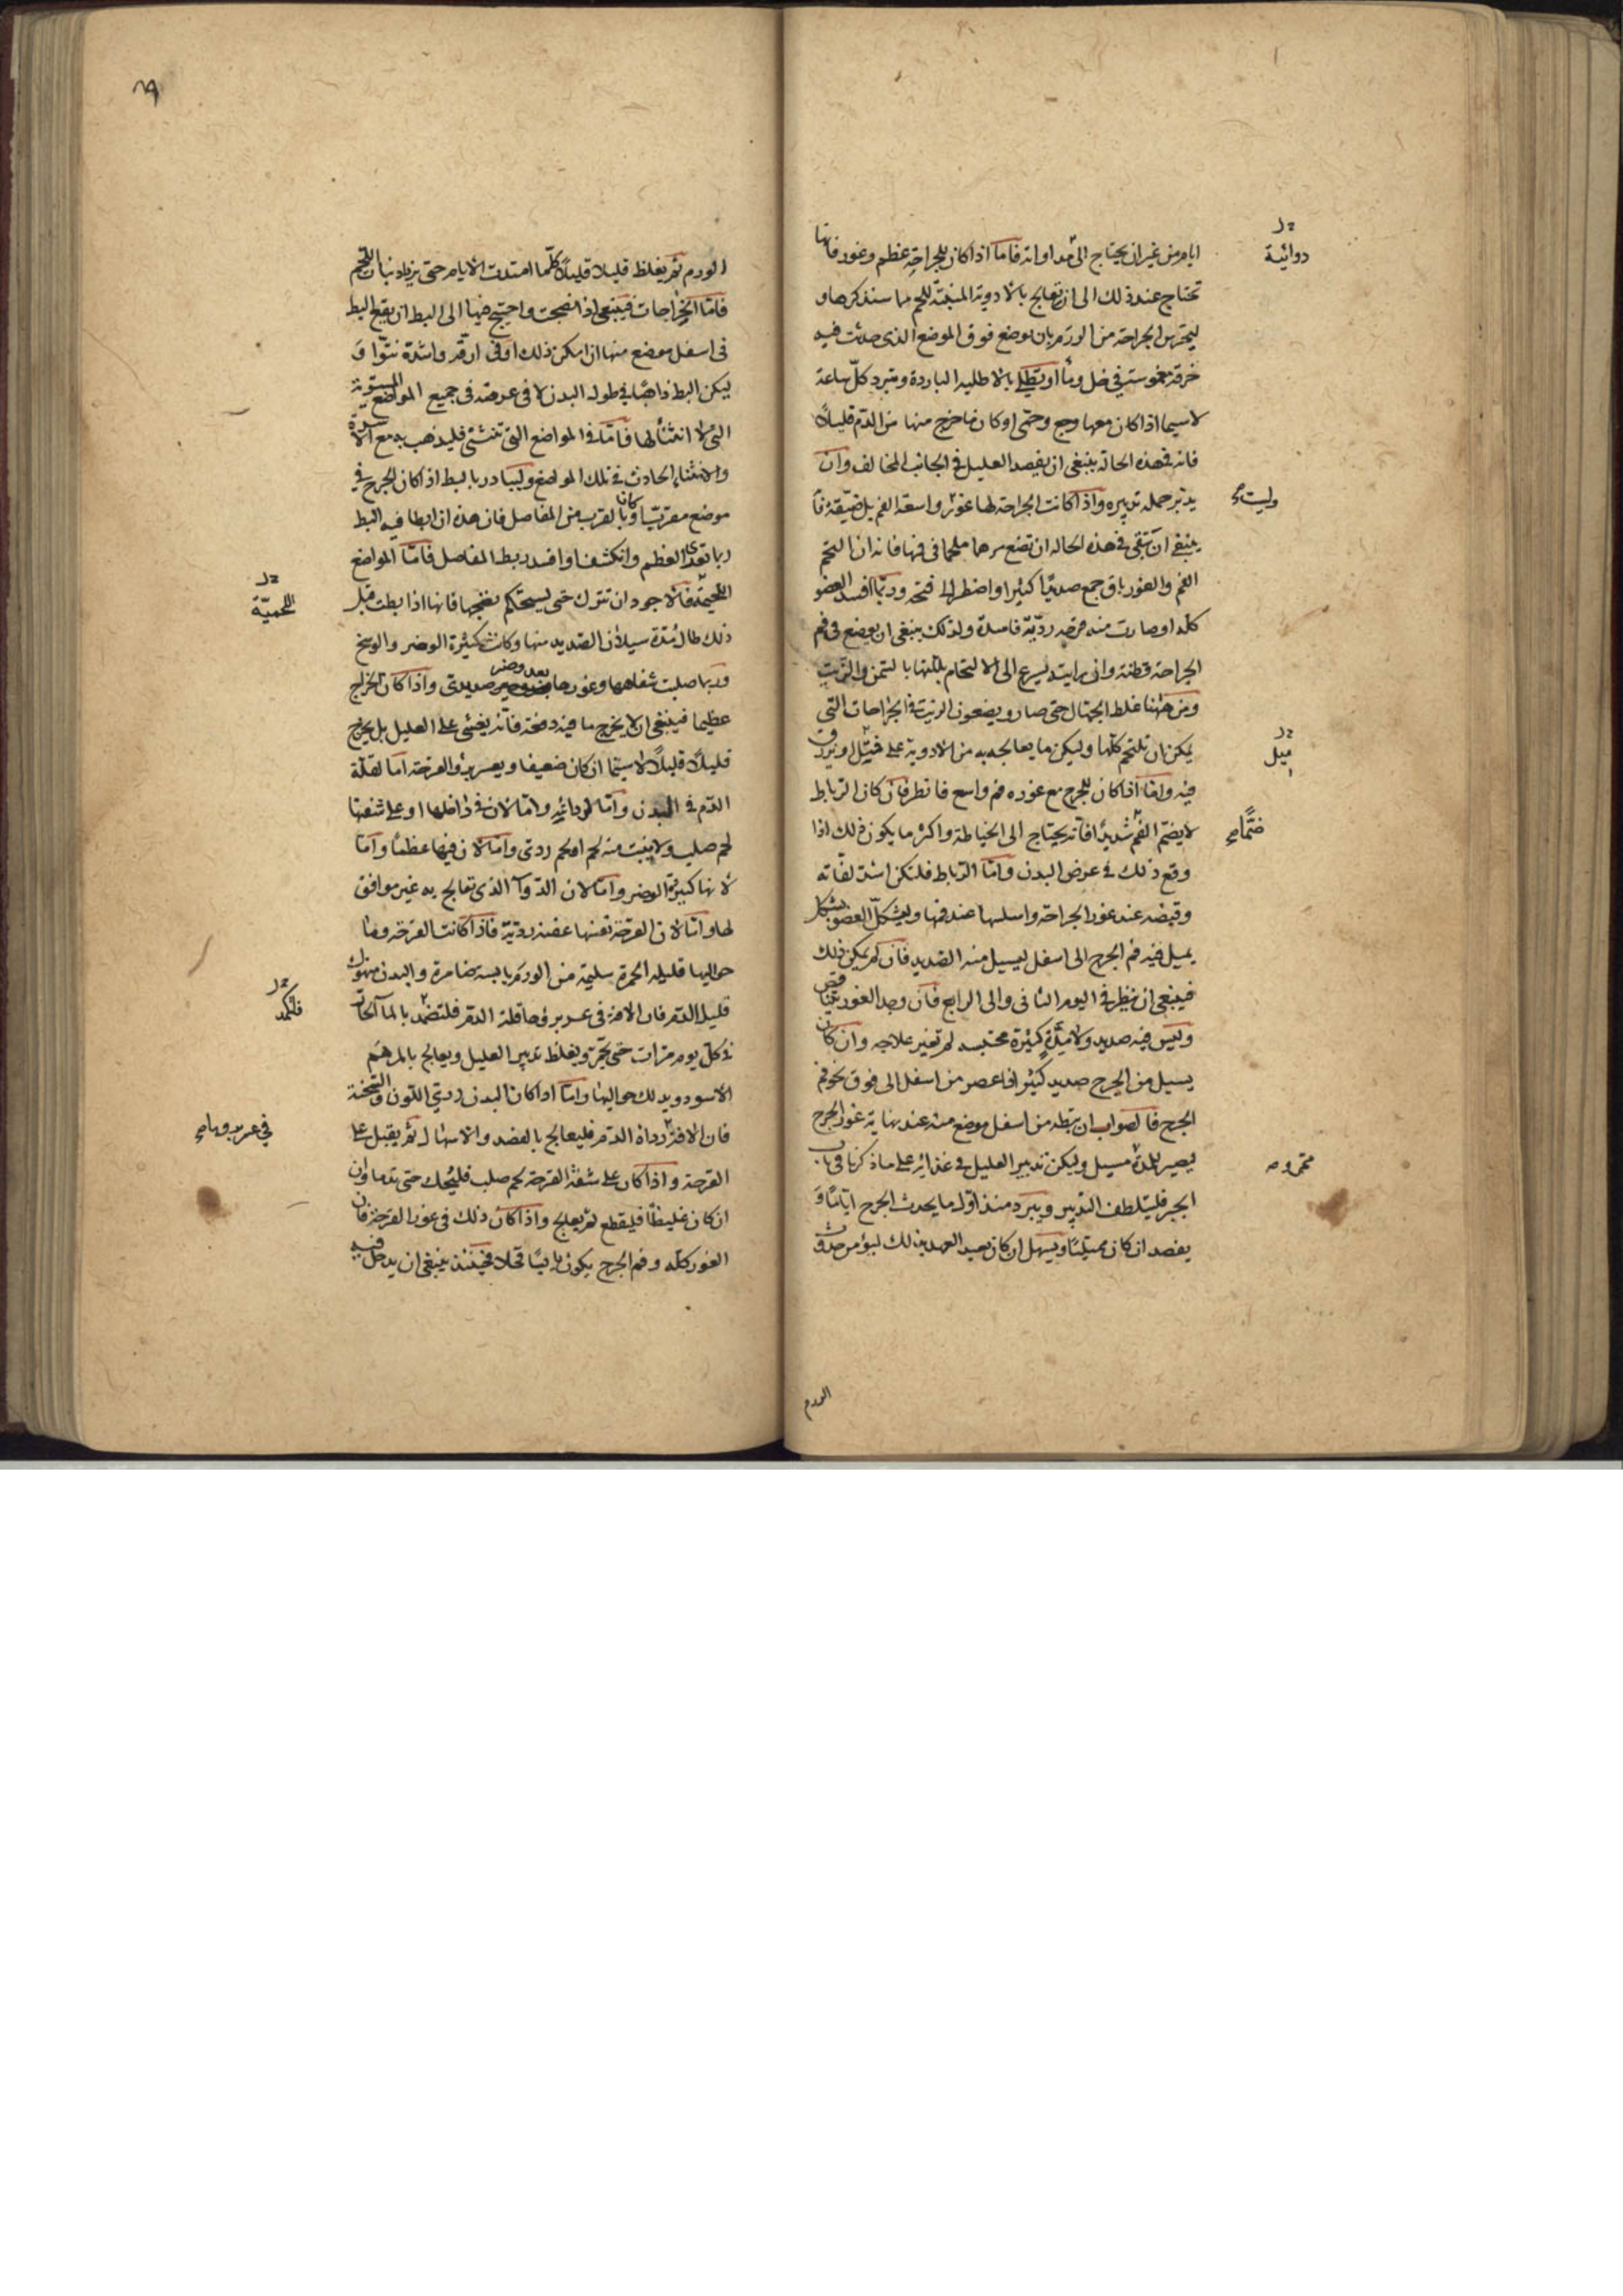 ايام من غير ان يحتاج الى مداواته فاما اذا كان للجراحة عظم وغور فانها
تحتاج عند ذلك الى ان تعالج بالادوية المنبتة للحم مما سنذكرها و
ليحترس الجراحة من الورم بان يوضع فوق الموضع الذى حدثت فيه
خرقة مغموسة في خل وماء او يطلى بالاطلية الباردة وتبرد كل ساعة
لا سيما اذا كان معها وجع وحمى او كان ما خرج منها من الدم قليلاً
فانه في هذه الحالة ينبغى ان يفصد العليل في الجانب المخالف وان
يدبر جملة تدبيره واذا كانت الجراحة لها غور واسعة الفم بل ضيقة فا
ينبغى ان تتقى في هذه الحالة ان تضع مرهما ملحما في فمها فانه ان التحم
الفم والغور باق جمع صديدًا كثيرا واضطر الى فتحه وربما افسد العضو
كله او صارت منه قرحه رديّة فاسدة ولذلك ينبغى ان يوضع فى فم
الجراحة قطنة وان رايته يسرع الى الالتحام بللتها بالسمن والزيت
ومن ههنا غلط الجهال حتى صاروا يضعون الزيت في الجراحات التى
يمكن ان تلتحم كلها وليكن ما يعالجه به من الادوية على فتيل او يزرق
فيه وامّا اذا كان للجرح مع غوره فم واسع فانظر فان كان الرباط
لا يضم الفم شديدًا فانه يحتاج الى الخياطة واكثر ما يكون ذلك اذا
وقع ذلك في عرض البدن وامّا الرباط فلتكن اشد لفاته
وقبضه عند غور الجراحة واسلسها عند فمها وليشكل العضو بشكل
يميل فيه فم الجرح الى اسفل ليسيل منه الصديد فان لم يمكن ذلك
فينبغى ان ينظر في اليوم الثانى والى الرابع فان وجد الغور
وليس فيه صديد ولا مدّة كثيرة محتبسه لم تغير علاجه وان كان
يسيل من الجرح صديد كثير اذا عصر من اسفل الى فوق نحو فم
الجرح فالصواب ان تبطه من اسفل موضع منه عند نهاية غور الجرح
ليصير للمدة مسيل وليكن تدبير العليل في غذائه على ما ذكرنا في باب
الجبر فليتلطف التدبير ويبرد منذ اول ما يحدث الجرح ايامًا وَ
يفصد ان كان ممتلئًا ويسهل ان كان بعيد العهد بذلك ليؤمن حدوث
الورم
دوائية
ميل
ضمًّا
الورم ثم يغلظ قليلا قليلاً كلما امتدت الايام حتى يزيد نبات اللحم
فامّا الخراجات فينبغى اذا نضجت واحتيج فيها الى البط ان يقع البط
فى اسفل موضع منها ان امكن ذلك او فى ارقه واشدة نتوّا وَ
ليكن البط ذاهبًا في طول البدن لا فى عرضه فى جميع المواضع المستوية
التى لا انثناء لها فامّا في المواضع التى تنثنى فليذهب به مع الاسرة
والانثناء الحادث في تلك المواضع وليبادر بالبط اذا كان الجرح في
موضع مفرّيًا وكانا بالقرب من المفاصل فان هذه ان ابطا فيه البط
ربما تعدى العظم وانكشفا وافسد ربط المفاصل فامّا المواضع
اللحيمة فالاجود ان تترك حتى يستحكم نضجها فانها اذا بطت قبل
ذلك طال مدة سيلان الصديد منها وكانت كثيرة الوضر والوسخ
وربما صلبت شفاهها وغورها صديدى واذا كان الخراج
عظيما فينبغى ان لا يخرج ما فيه دفعة فانه يغشى على العليل بل يخرج
قليلاً قليلاً لا سيما ان كان ضعيفا ويعسر برؤ القرحة اما لقلة
الدم في البدن وامّا لرداءته وامّا لان في داخلها او على شفتها
لحم صلب ولا ينبت منه لحم او لحم ردى وامّا لان فيها عظمًا وامّا
لانها كبيرة الوضر وامّا لان الدوآ الذى تعالج به غير موافق
لها وامّا لان القرحة نفسها عفنه رديّة فاذا كانت القرحة وما
حواليها قليلة الحمرة سليمة من الورم يابسة ضامرة والبدن منهوك
قليل الدم فان الآفة فى عسر برؤها قلة الدم فلتضمد بالمآ الحار
في كل يوم مرات حتى يحمّر ويغلظ تدبير العليل ويعالج بالمرهم
الاسود ويدلك حواليها وامّا اذا كان البدن ردي اللون والسحنة
فان الآفة رداة الدم فليعالج بالفصد والاسهال ثم يقبل على
القرحة واذا كان على شفة القرحة لحم صلب فليحك حتى يدما وان
ان كان غليظًا فليقطع ثم يعالج واذا كان ذلك فى غور القرحة فان
الغور كله وفم الجرح يكون يابسًا قحلا فحينئذ ينبغى ان يدخل فيه
اللحمية
فلتكمد